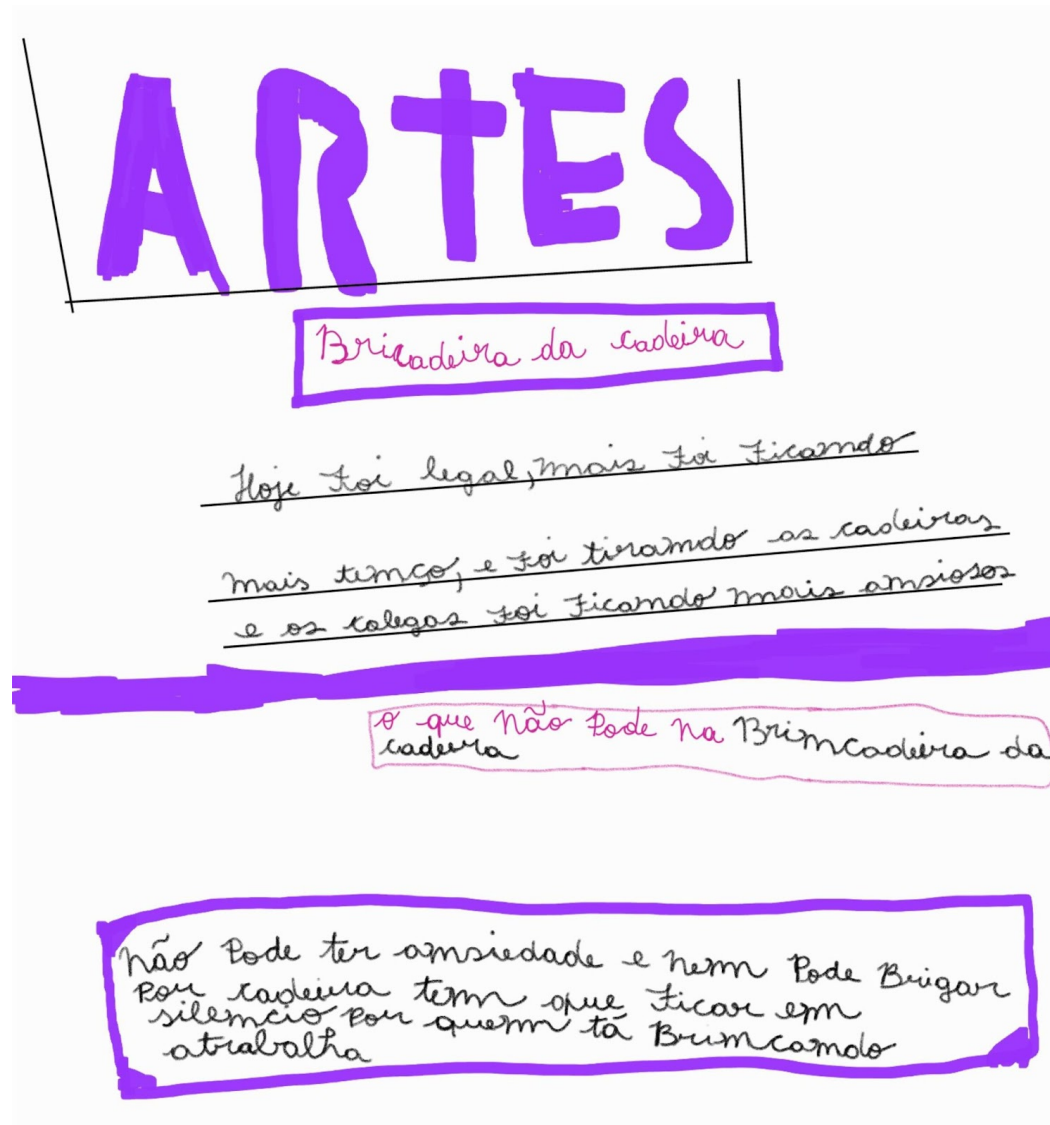 ARTES
Bricadeira da cadeira
Hoje Foi legal, mais Foi Ficamdo
mais temço, e Foi tiramdo as cadeiras
e os colegas Foi Ficamdo mais amsiosos
o que não Pode na Brimcadeira da
cadeira
não Pode ter amsiedade e nem Pode Brigar
Por cadeira tem que Ficar em
silemcio Por quem tá Brimcamdo
atrabalha